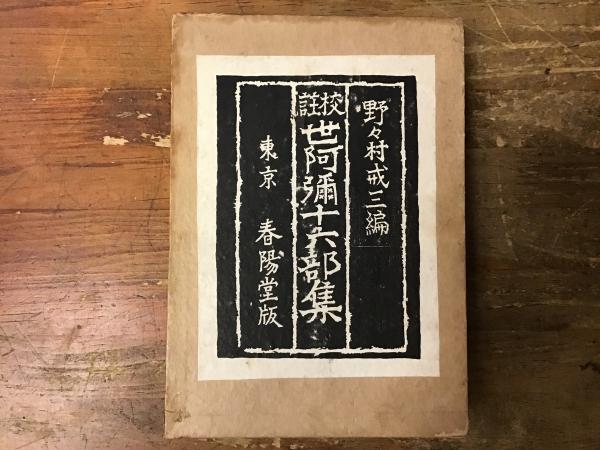 野々村戒三編
校註
世阿彌十六部集
東京 春陽堂版